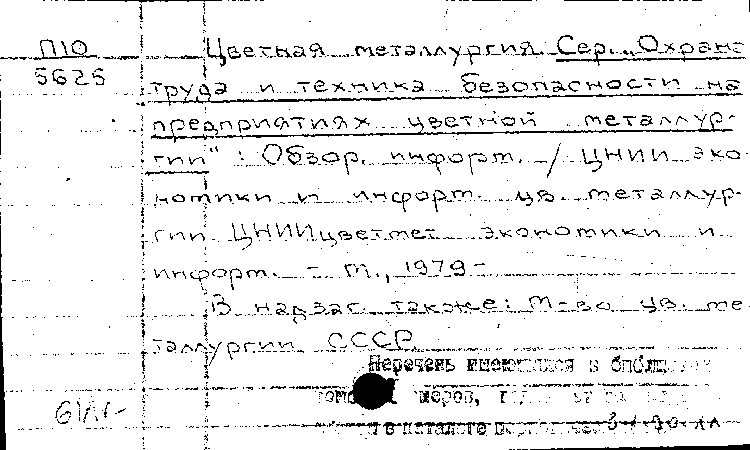 П10 Цветная металлургия. Сер. „Охрана
5625 труда и техника безопасности на
предприятиях цветной металлур-
гии" : Обзор. информ. / ЦНИИ эко-
номики и информ. цв. металлур-
гии ЦНИИцветмет экономики и
информ. - М., 1979-
В надзаг. также: М-во цв. ме-
таллургии СССР
Перечень имеющихся в
номеров,
в каталоге